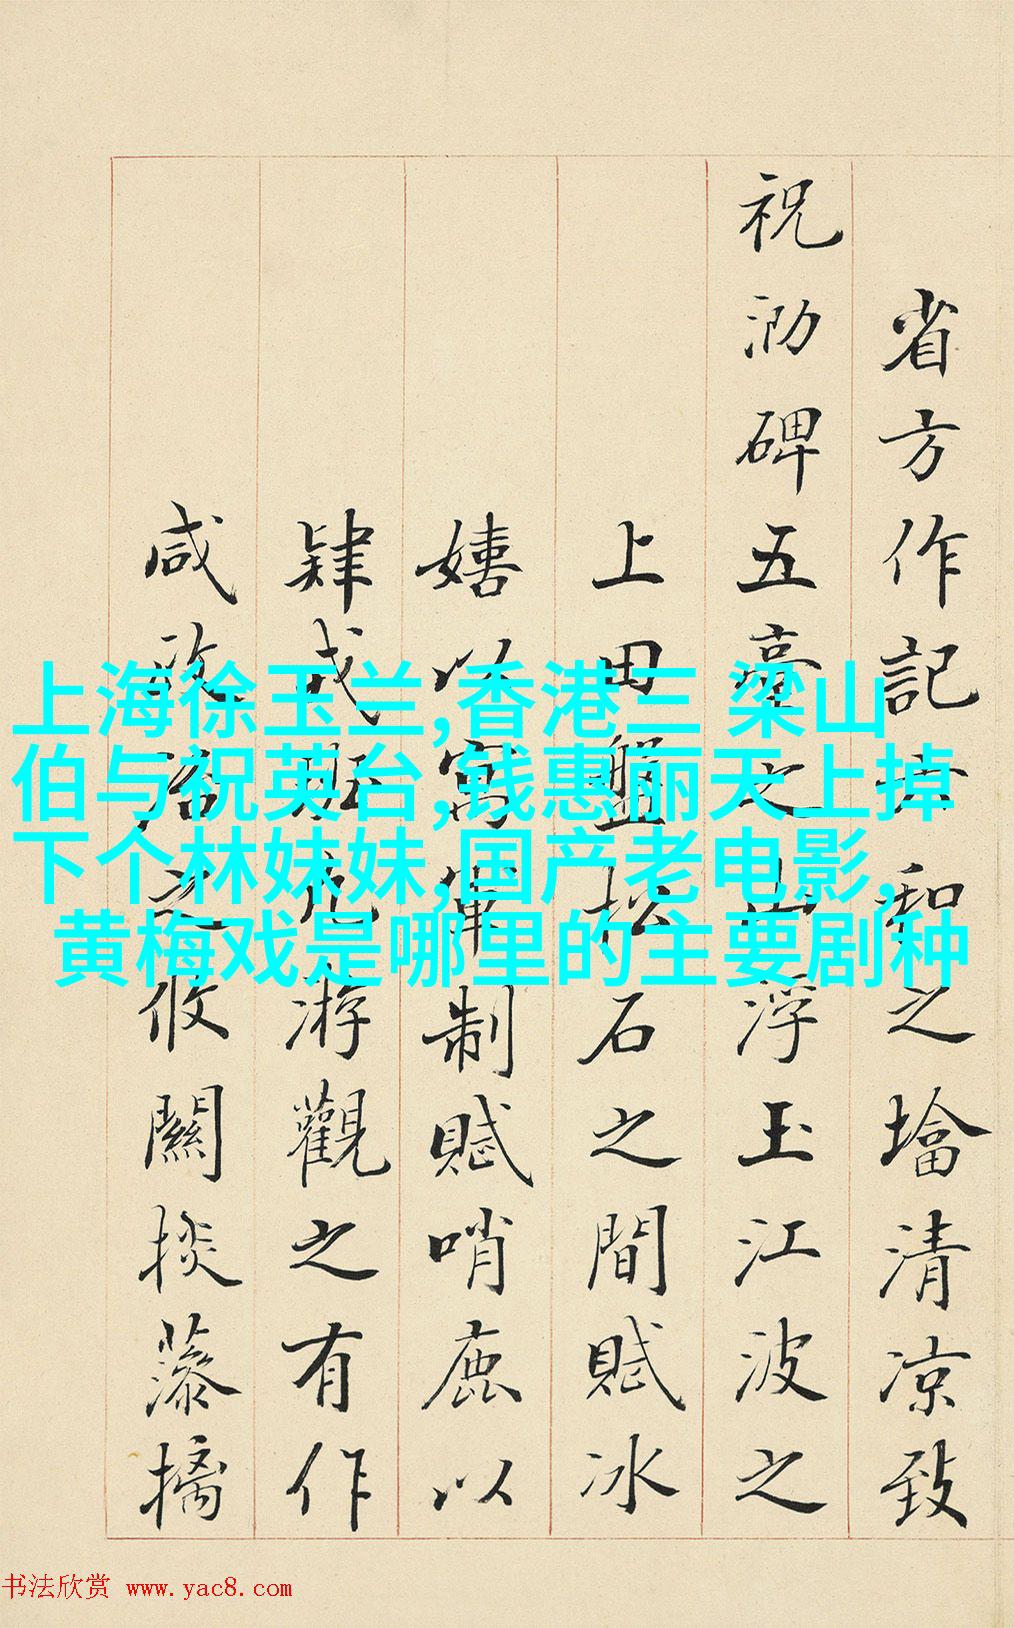 上海徐玉兰,香港三 梁山
伯与祝英台,钱惠丽天上掉
下个林妹妹,国产老电影,
黄梅戏是哪里的主要剧种
省方作記之墖清凉致
祝泐碑五臺之山浮玉江波之
上田盤松石之間賦冰
嬉以寓制賦哨鹿以
肆游觀之有作
咸攸關掞摛
书法欣赏 www.yac8.com